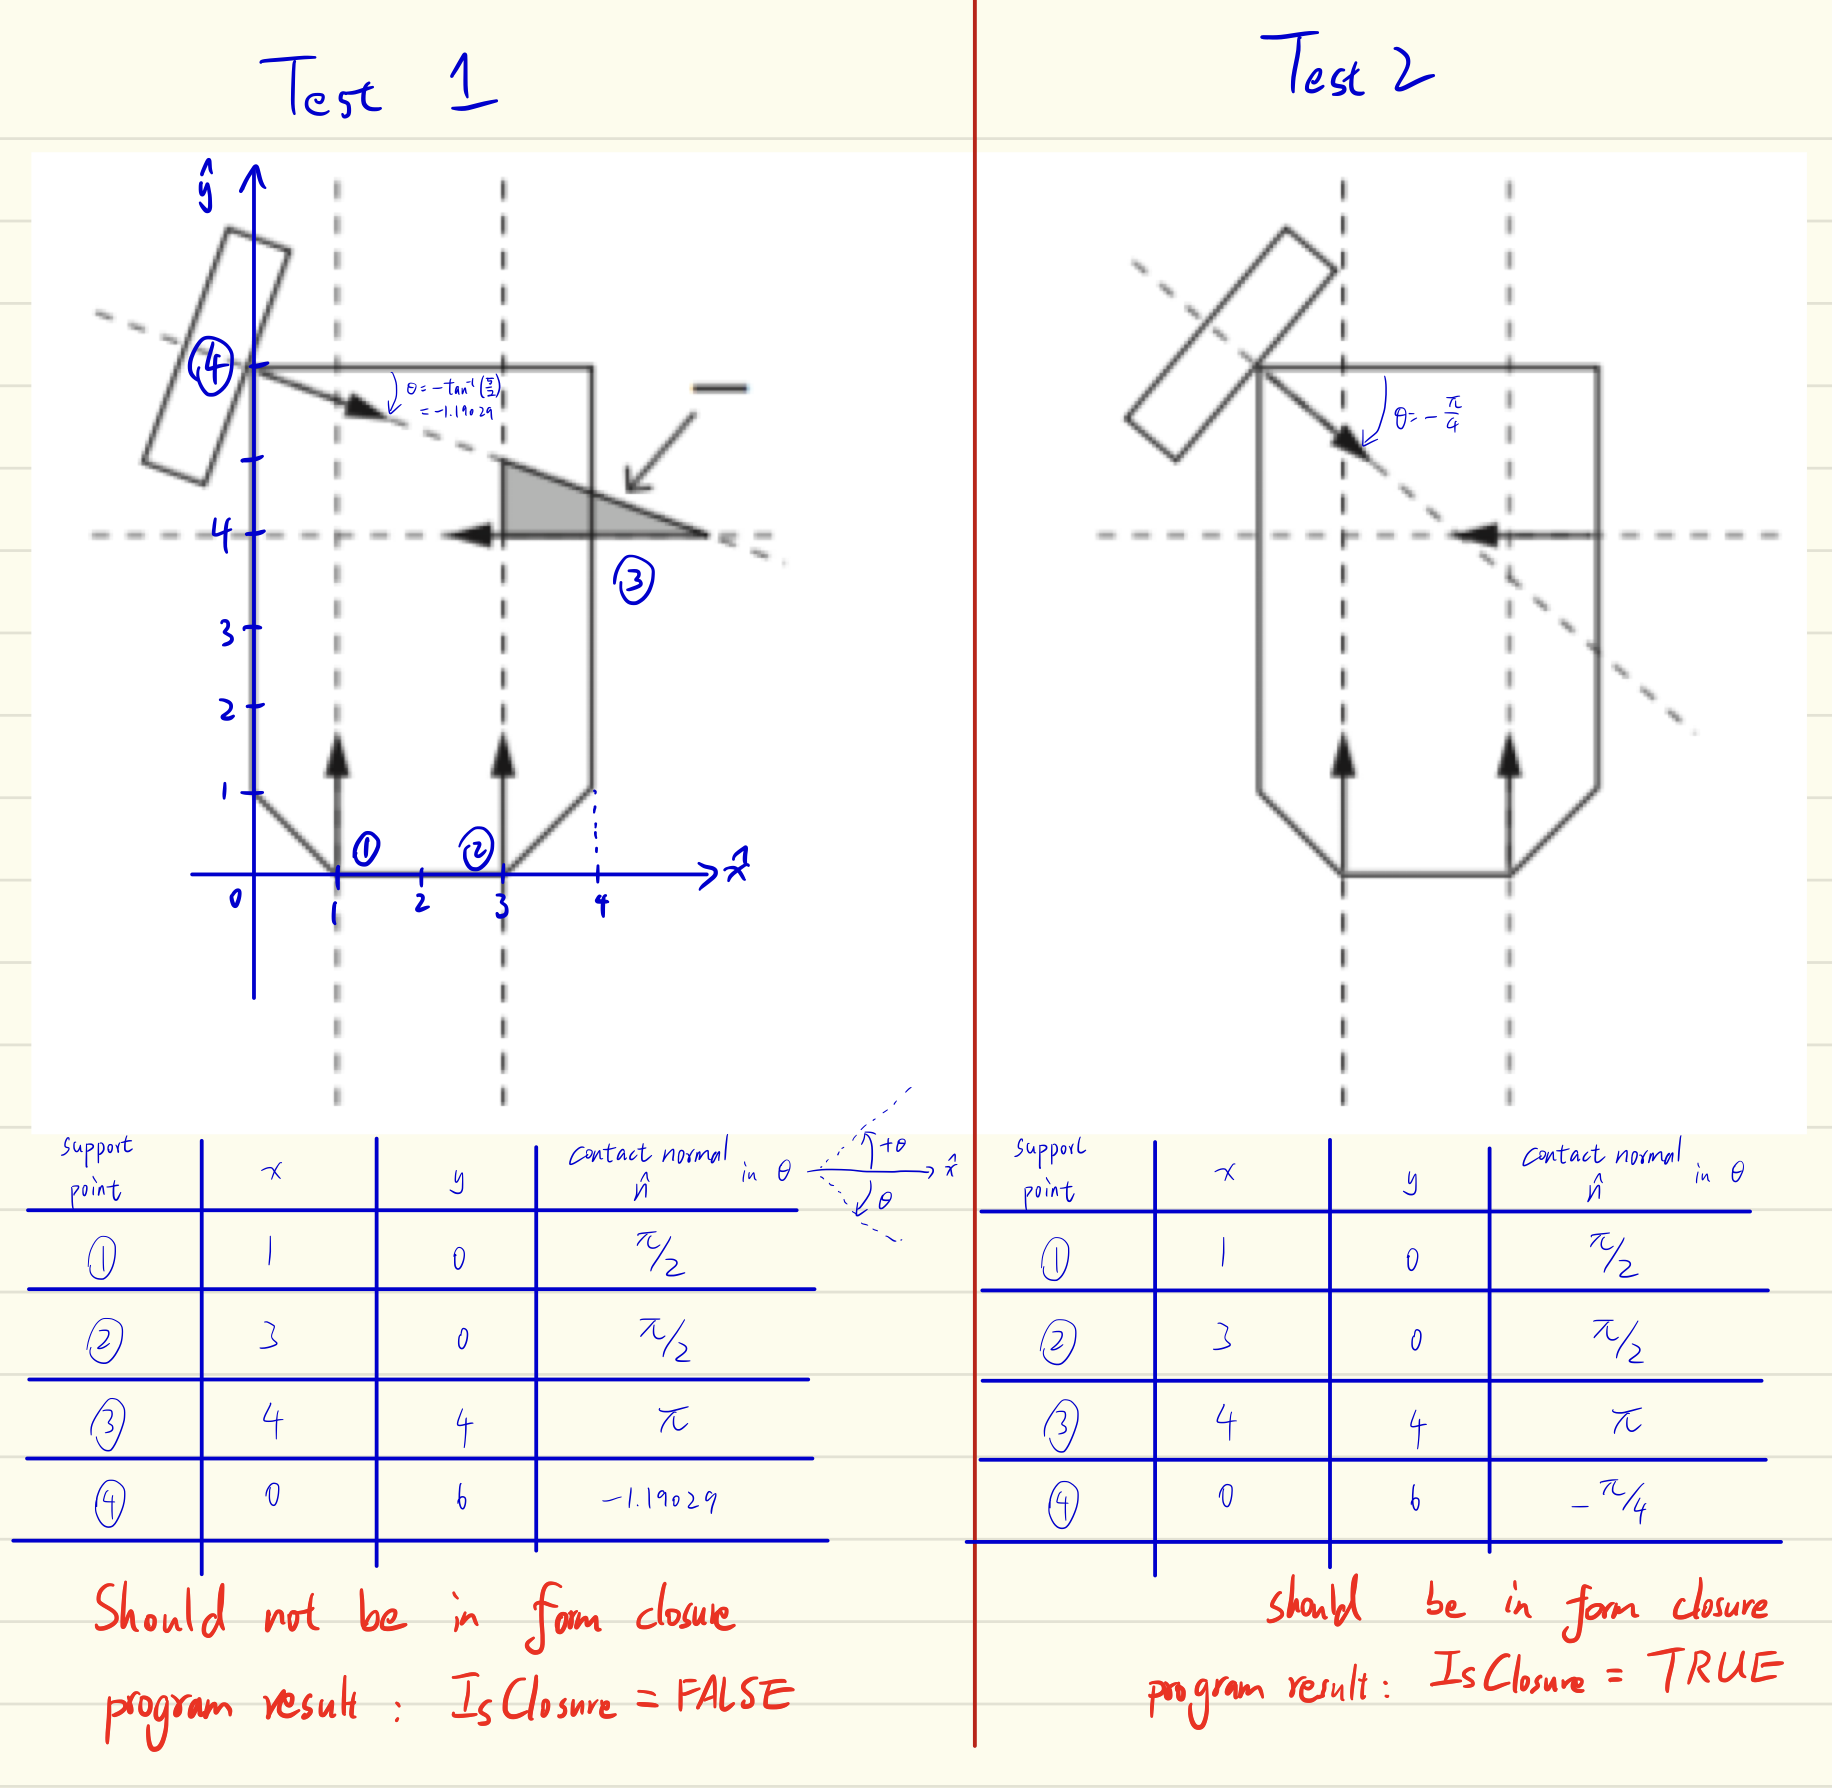 Test 1
ŷ
④
θ = -tan⁻¹(5/2)
= -1.19029
4
③
3
2
1
① ②
x̂
0 1 2 3 4
support point x y contact normal n̂ in θ
+θ x̂
θ
① 1 0 π/2
② 3 0 π/2
③ 4 4 π
④ 0 6 -1.19029
Should not be in form closure
program result : IsClosure = FALSE
Test 2
θ = -π/4
support point x y contact normal n̂ in θ
① 1 0 π/2
② 3 0 π/2
③ 4 4 π
④ 0 6 -π/4
should be in form closure
program result : IsClosure = TRUE